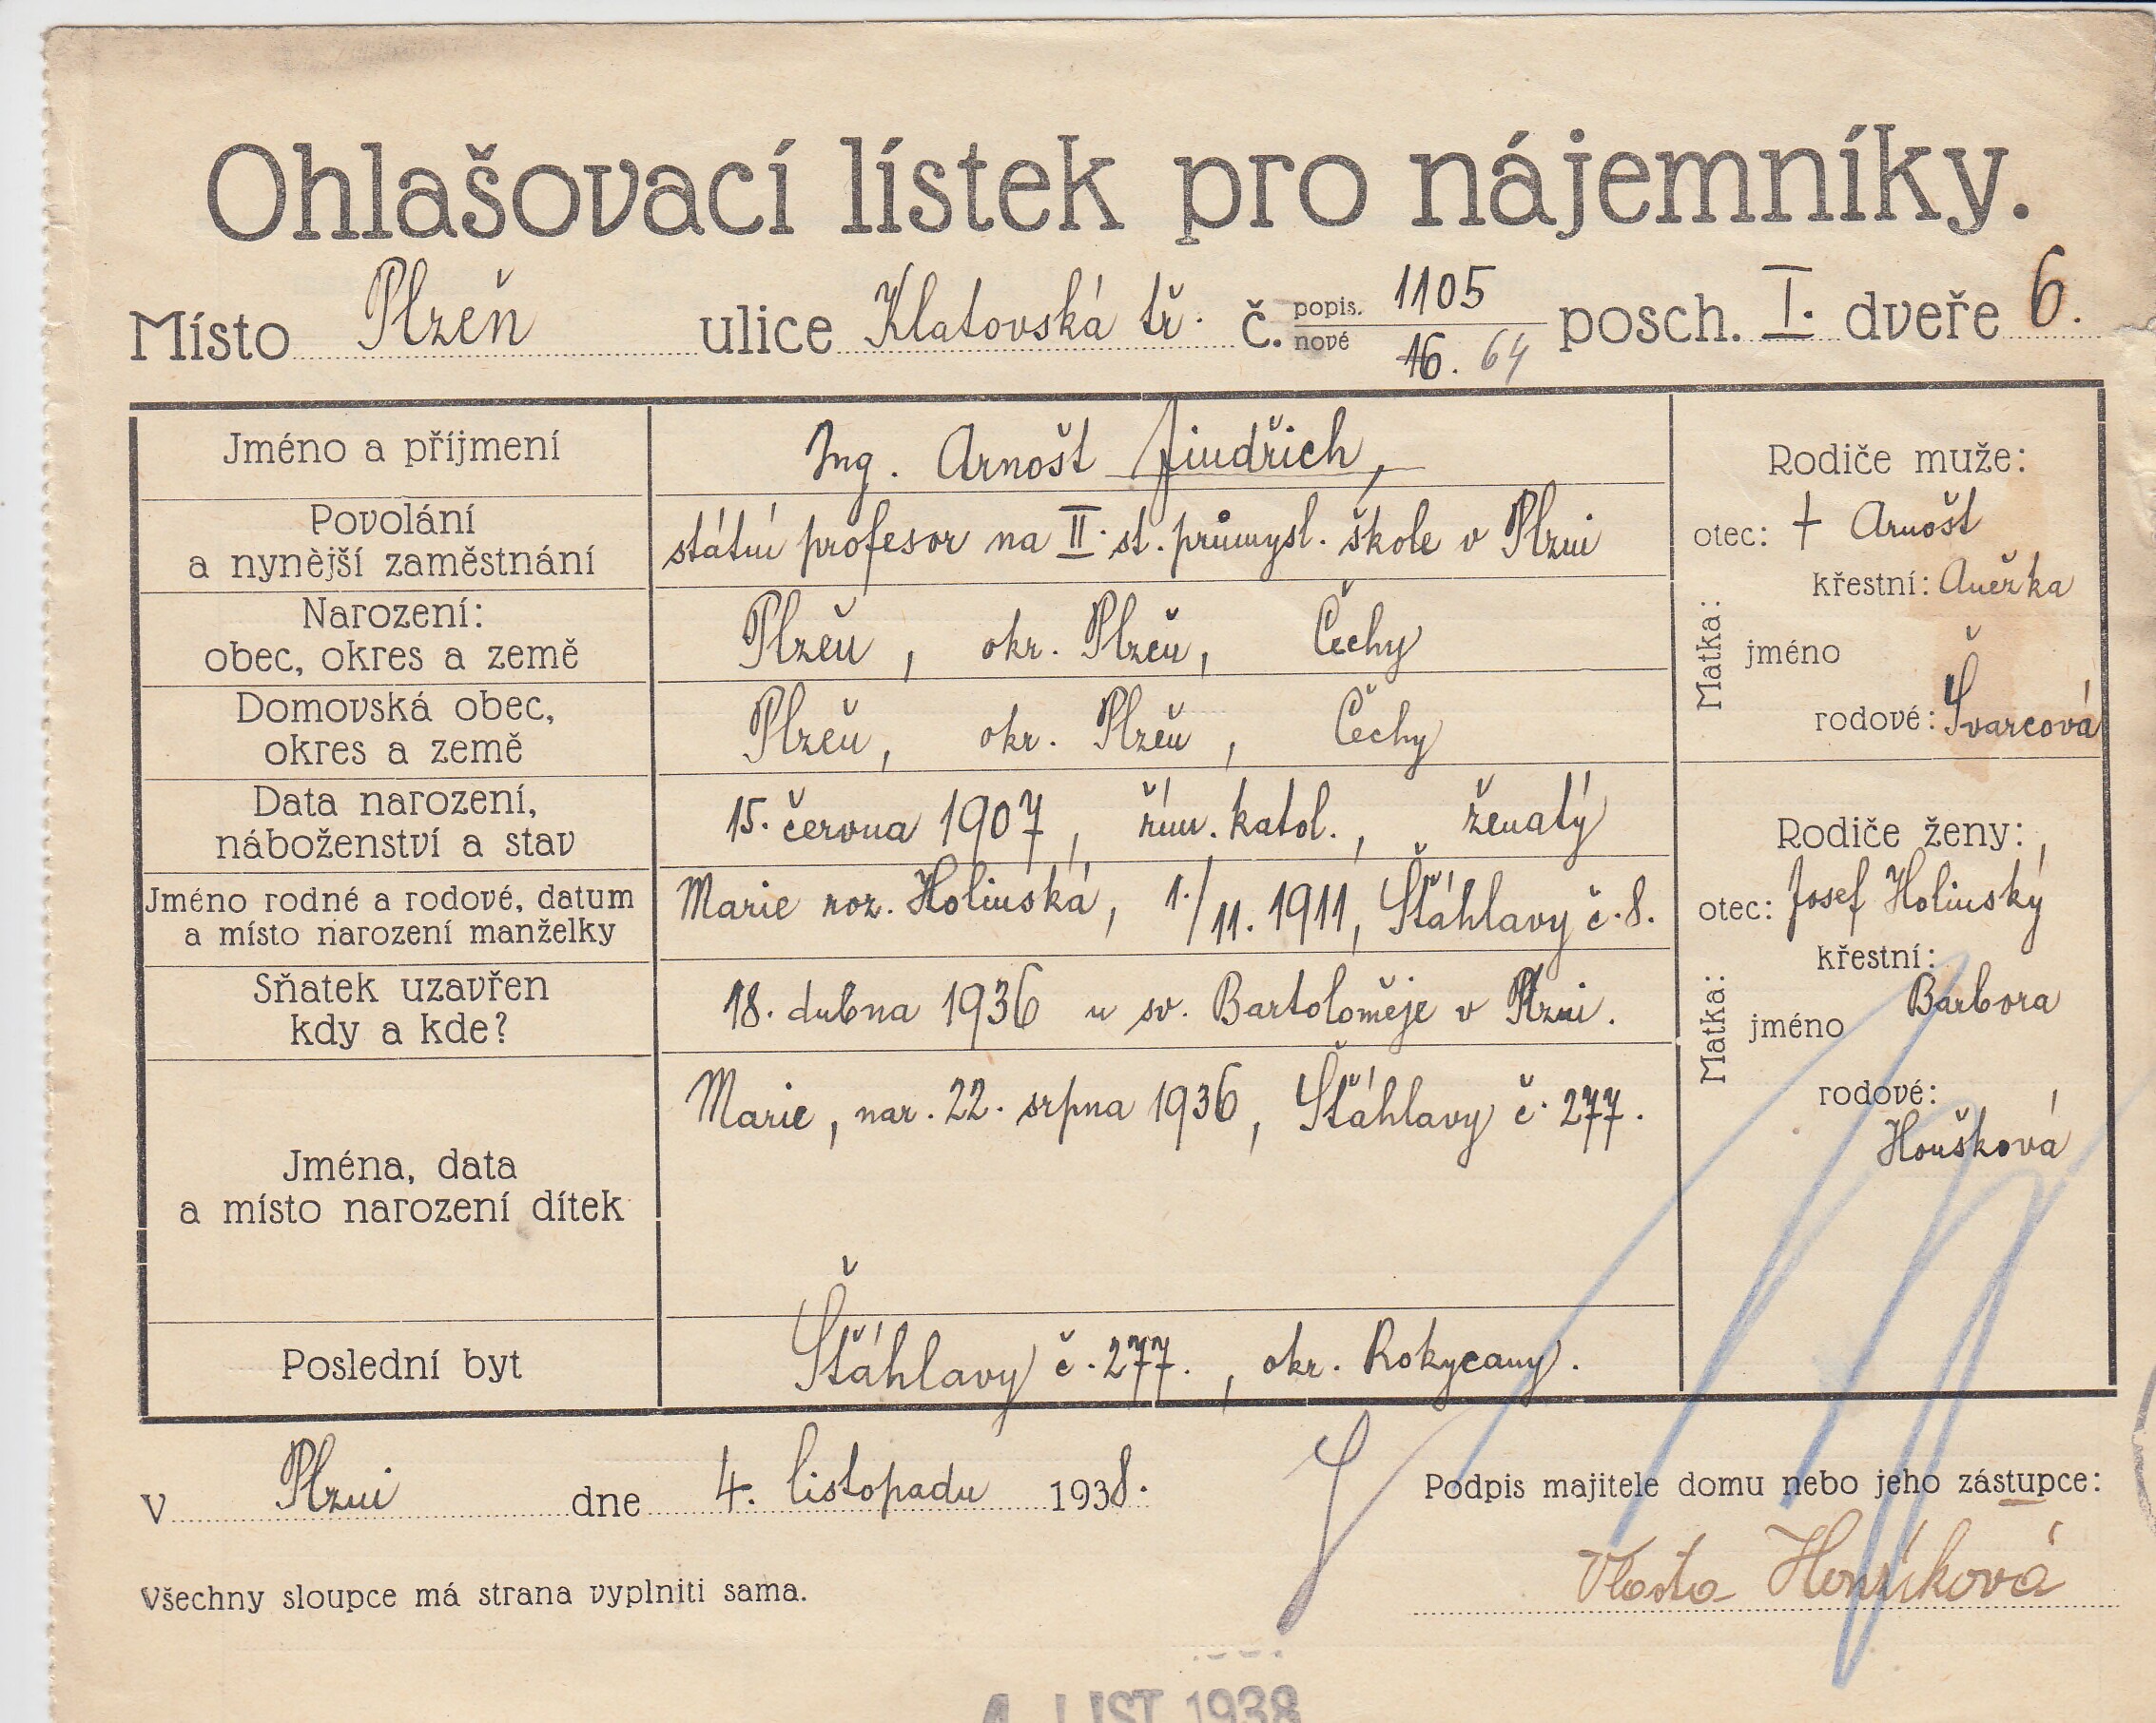 Ohlašovací lístek pro nájemníky.
Místo Plzeň ulice Klatovská tř. č. popis. 1105 nové 16. 64 posch. I. dveře 6.
Jméno a příjmení
Ing. Arnošt Jindřich,
Povolání
a nynější zaměstnání
státní profesor na II. st. průmysl. škole v Plzni
Narození:
obec, okres a země
Plzeň, okr. Plzeň, Čechy
Domovská obec,
okres a země
Plzeň, okr. Plzeň, Čechy
Data narození,
náboženství a stav
15. června 1907, řím. katol., ženatý
Jméno rodné a rodové, datum
a místo narození manželky
Marie roz. Holinská, 1./11. 1911, Šťáhlavy č. 8.
Sňatek uzavřen
kdy a kde?
18. dubna 1936 u sv. Bartoloměje v Plzni.
Jména, data
a místo narození dítek
Marie, nar. 22. srpna 1936, Šťáhlavy č. 277.
Poslední byt
Šťáhlavy č. 277., okr. Rokycany.
Rodiče muže:
otec: † Arnošt
Matka:
křestní: Anežka
jméno
rodové: Švarcová
Rodiče ženy:
otec: Josef Holinský
Matka:
křestní:
Barbora
jméno
rodové:
Houšková
V Plzni dne 4. listopadu 1938.
Podpis majitele domu nebo jeho zástupce:
Vlasta
Všechny sloupce má strana vyplniti sama.
4. LIST. 1938